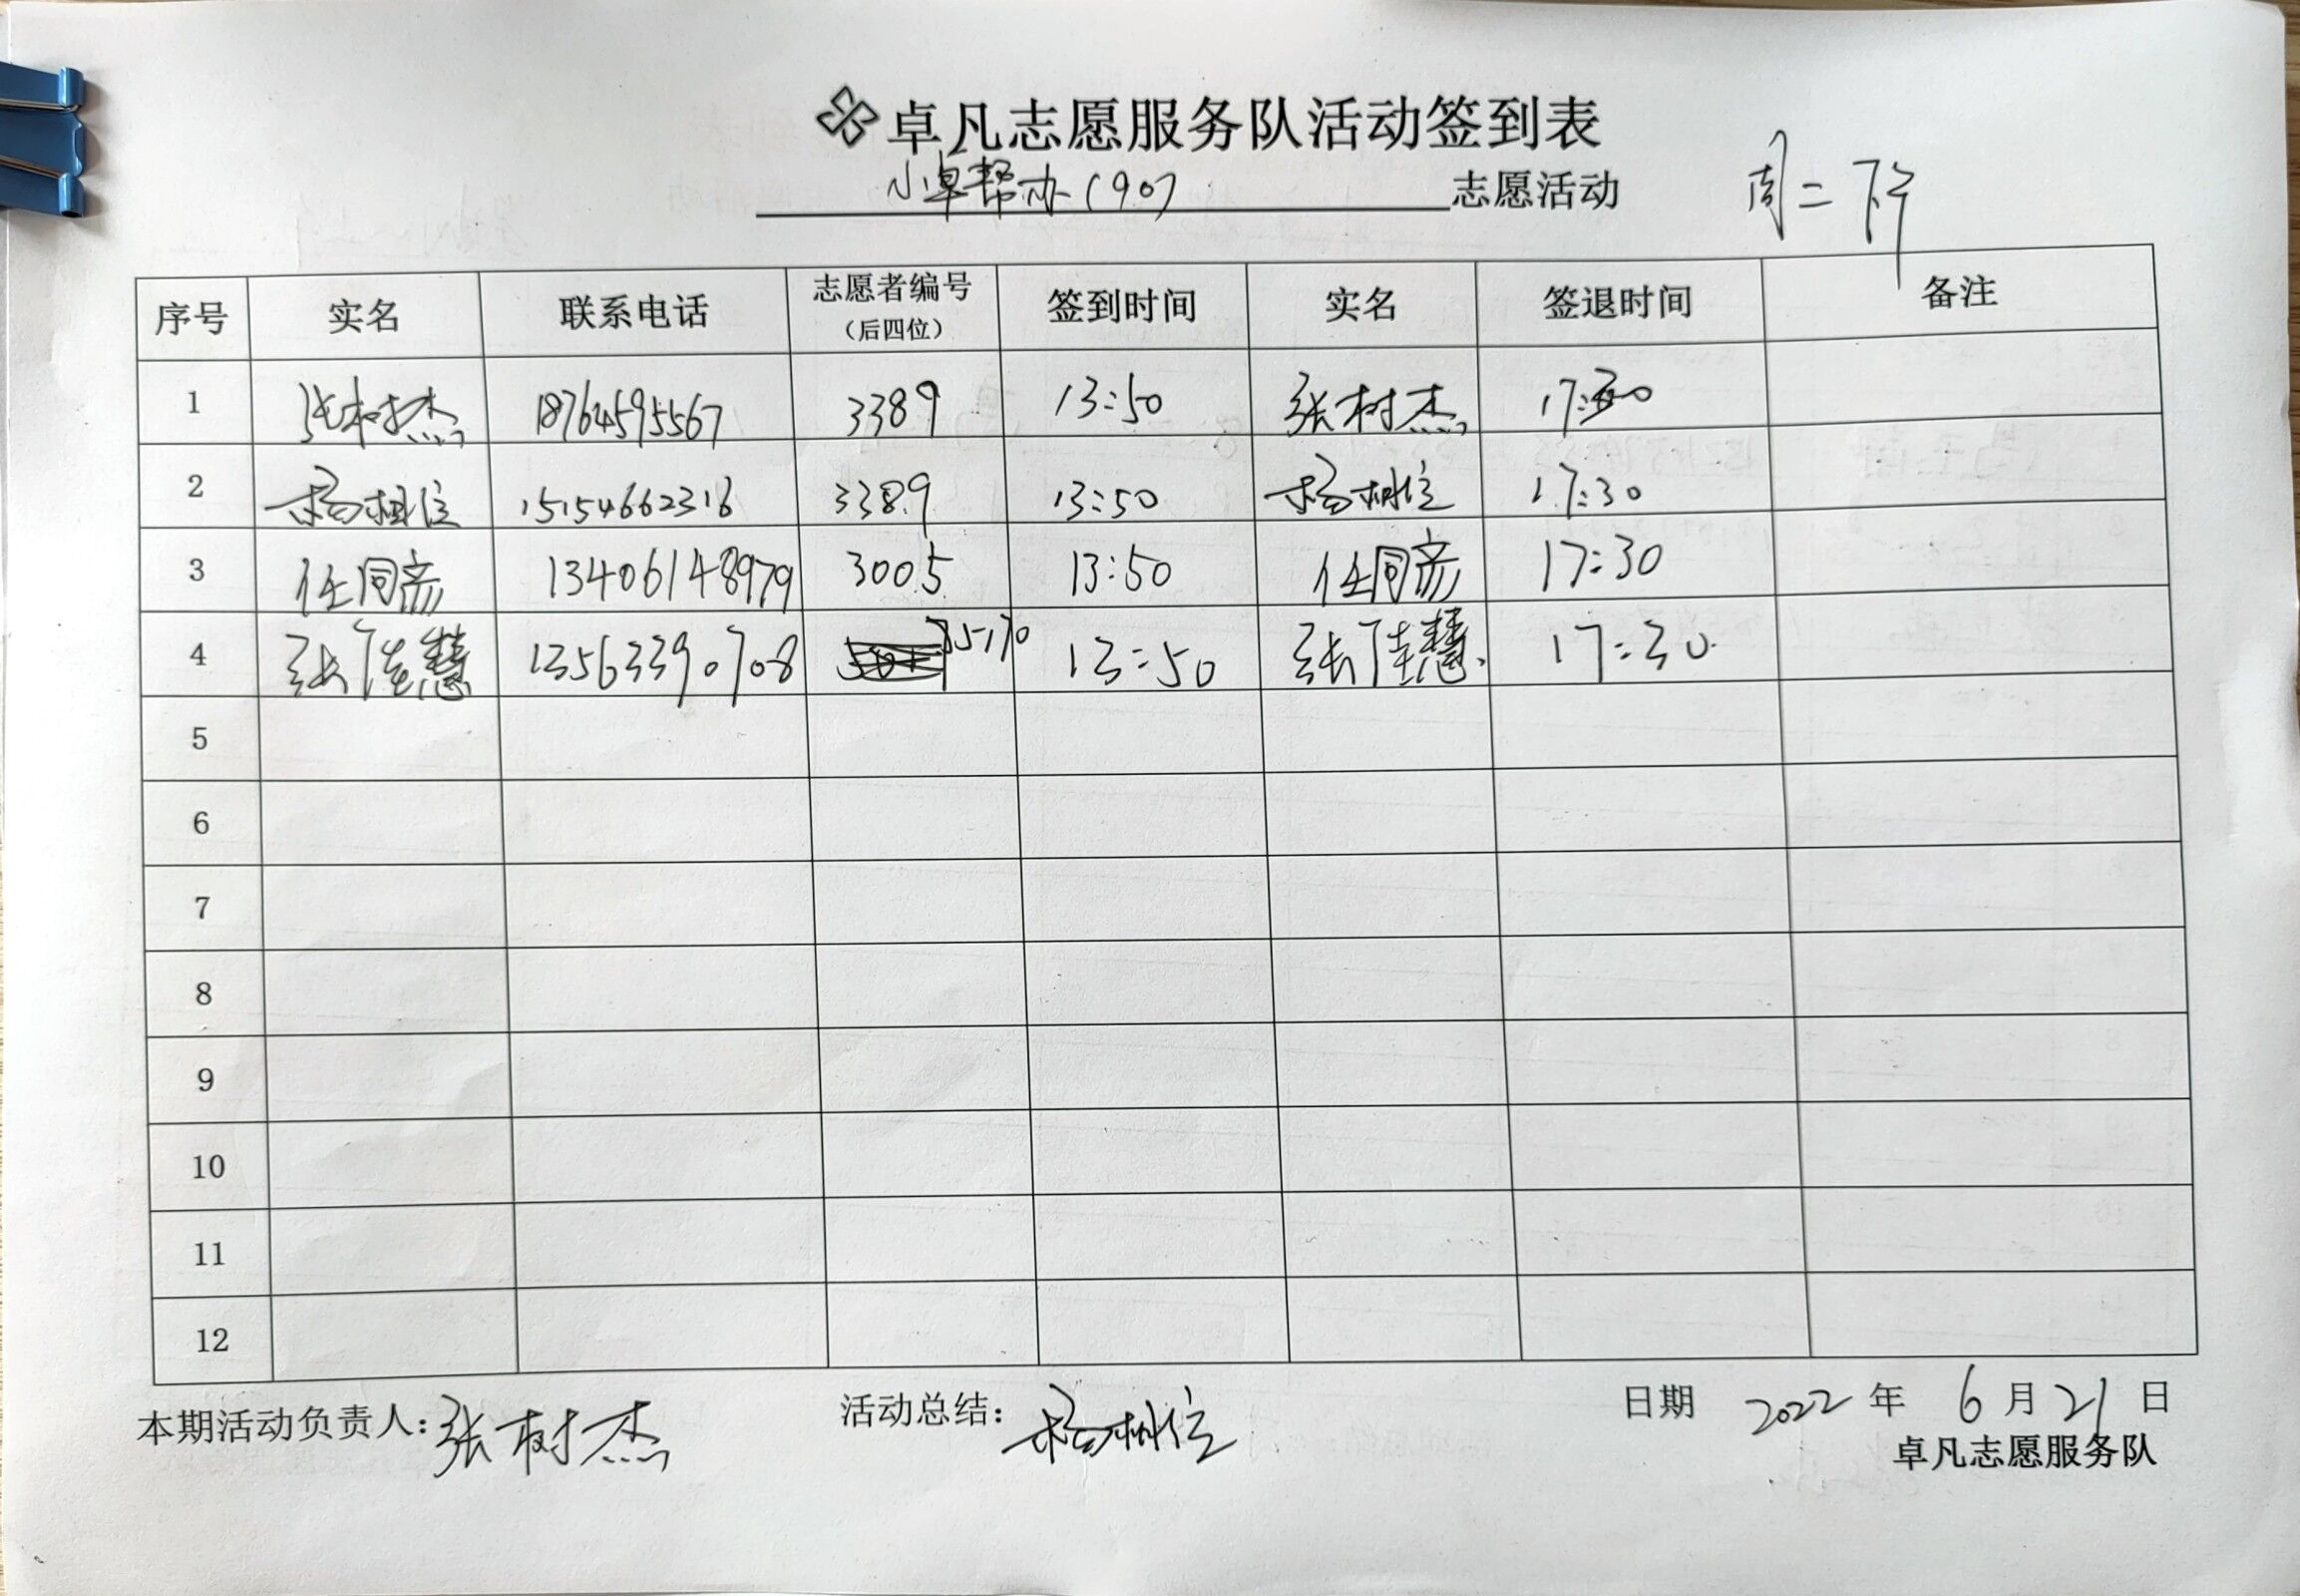 卓凡志愿服务队活动签到表
小卓帮办(90) 志愿活动 周二下午
序号 实名 联系电话 志愿者编号(后四位) 签到时间 实名 签退时间 备注
1 张树杰 18764595567 3389 13:50 张树杰 17:30
2 杨树信 15154662316 3389 13:50 杨树信 17:30
3 任同彦 13406148979 3005 13:50 任同彦 17:30
4 张佳慧 13563390708 3570 13:50 张佳慧 17:30
5
6
7
8
9
10
11
12
本期活动负责人:张树杰 活动总结:杨树信 日期 2022 年 6 月 21 日
卓凡志愿服务队